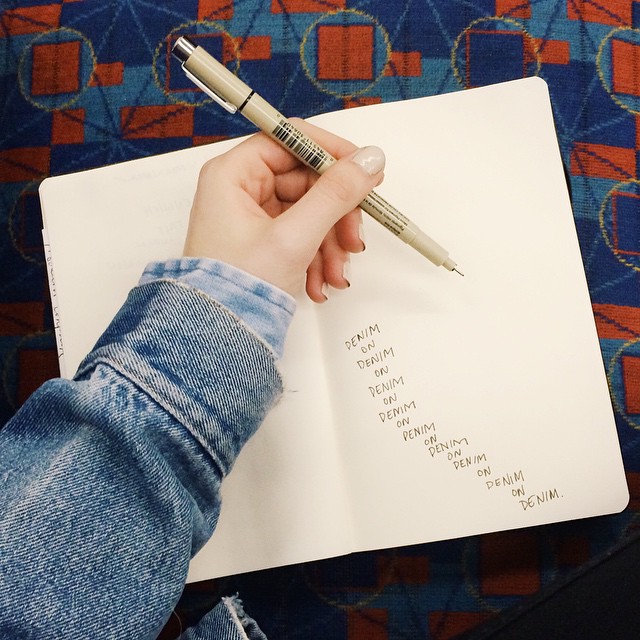 DENIM
ON
DENIM
ON
DENIM
ON
DENIM
ON
DENIM
ON
DENIM
ON
DENIM
ON
DENIM
ON
DENIM.